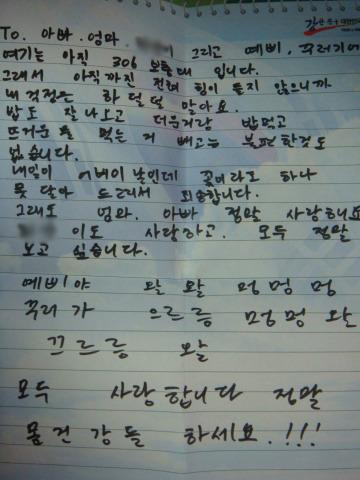 강한 친구 대한민국
To. 아빠. 엄마. 이 그리고 예삐. 꾸러기에
여기는 아직 306 보충대 입니다.
그래서 아직까진 전혀 힘이 들지 않으니까
내 걱정은 하덜덜 말아요.
밥도 잘 나오고 더운거랑 밥먹고
뜨거운 물 먹는 거 빼고는 불편한것도
없습니다.
내일이 어버이 날인데 꽃이라도 하나
못 달아 드려서 죄송합니다.
그래도 엄마. 아빠 정말 사랑해요
이도 사랑하고. 모두 정말
보고 싶습니다.
예삐야 왈 왈 멍 멍 멍
꾸러가 으르릉 멍멍 왈
끄르릉 왈
모두 사랑합니다 정말
몸 건강들 하세요.!!!